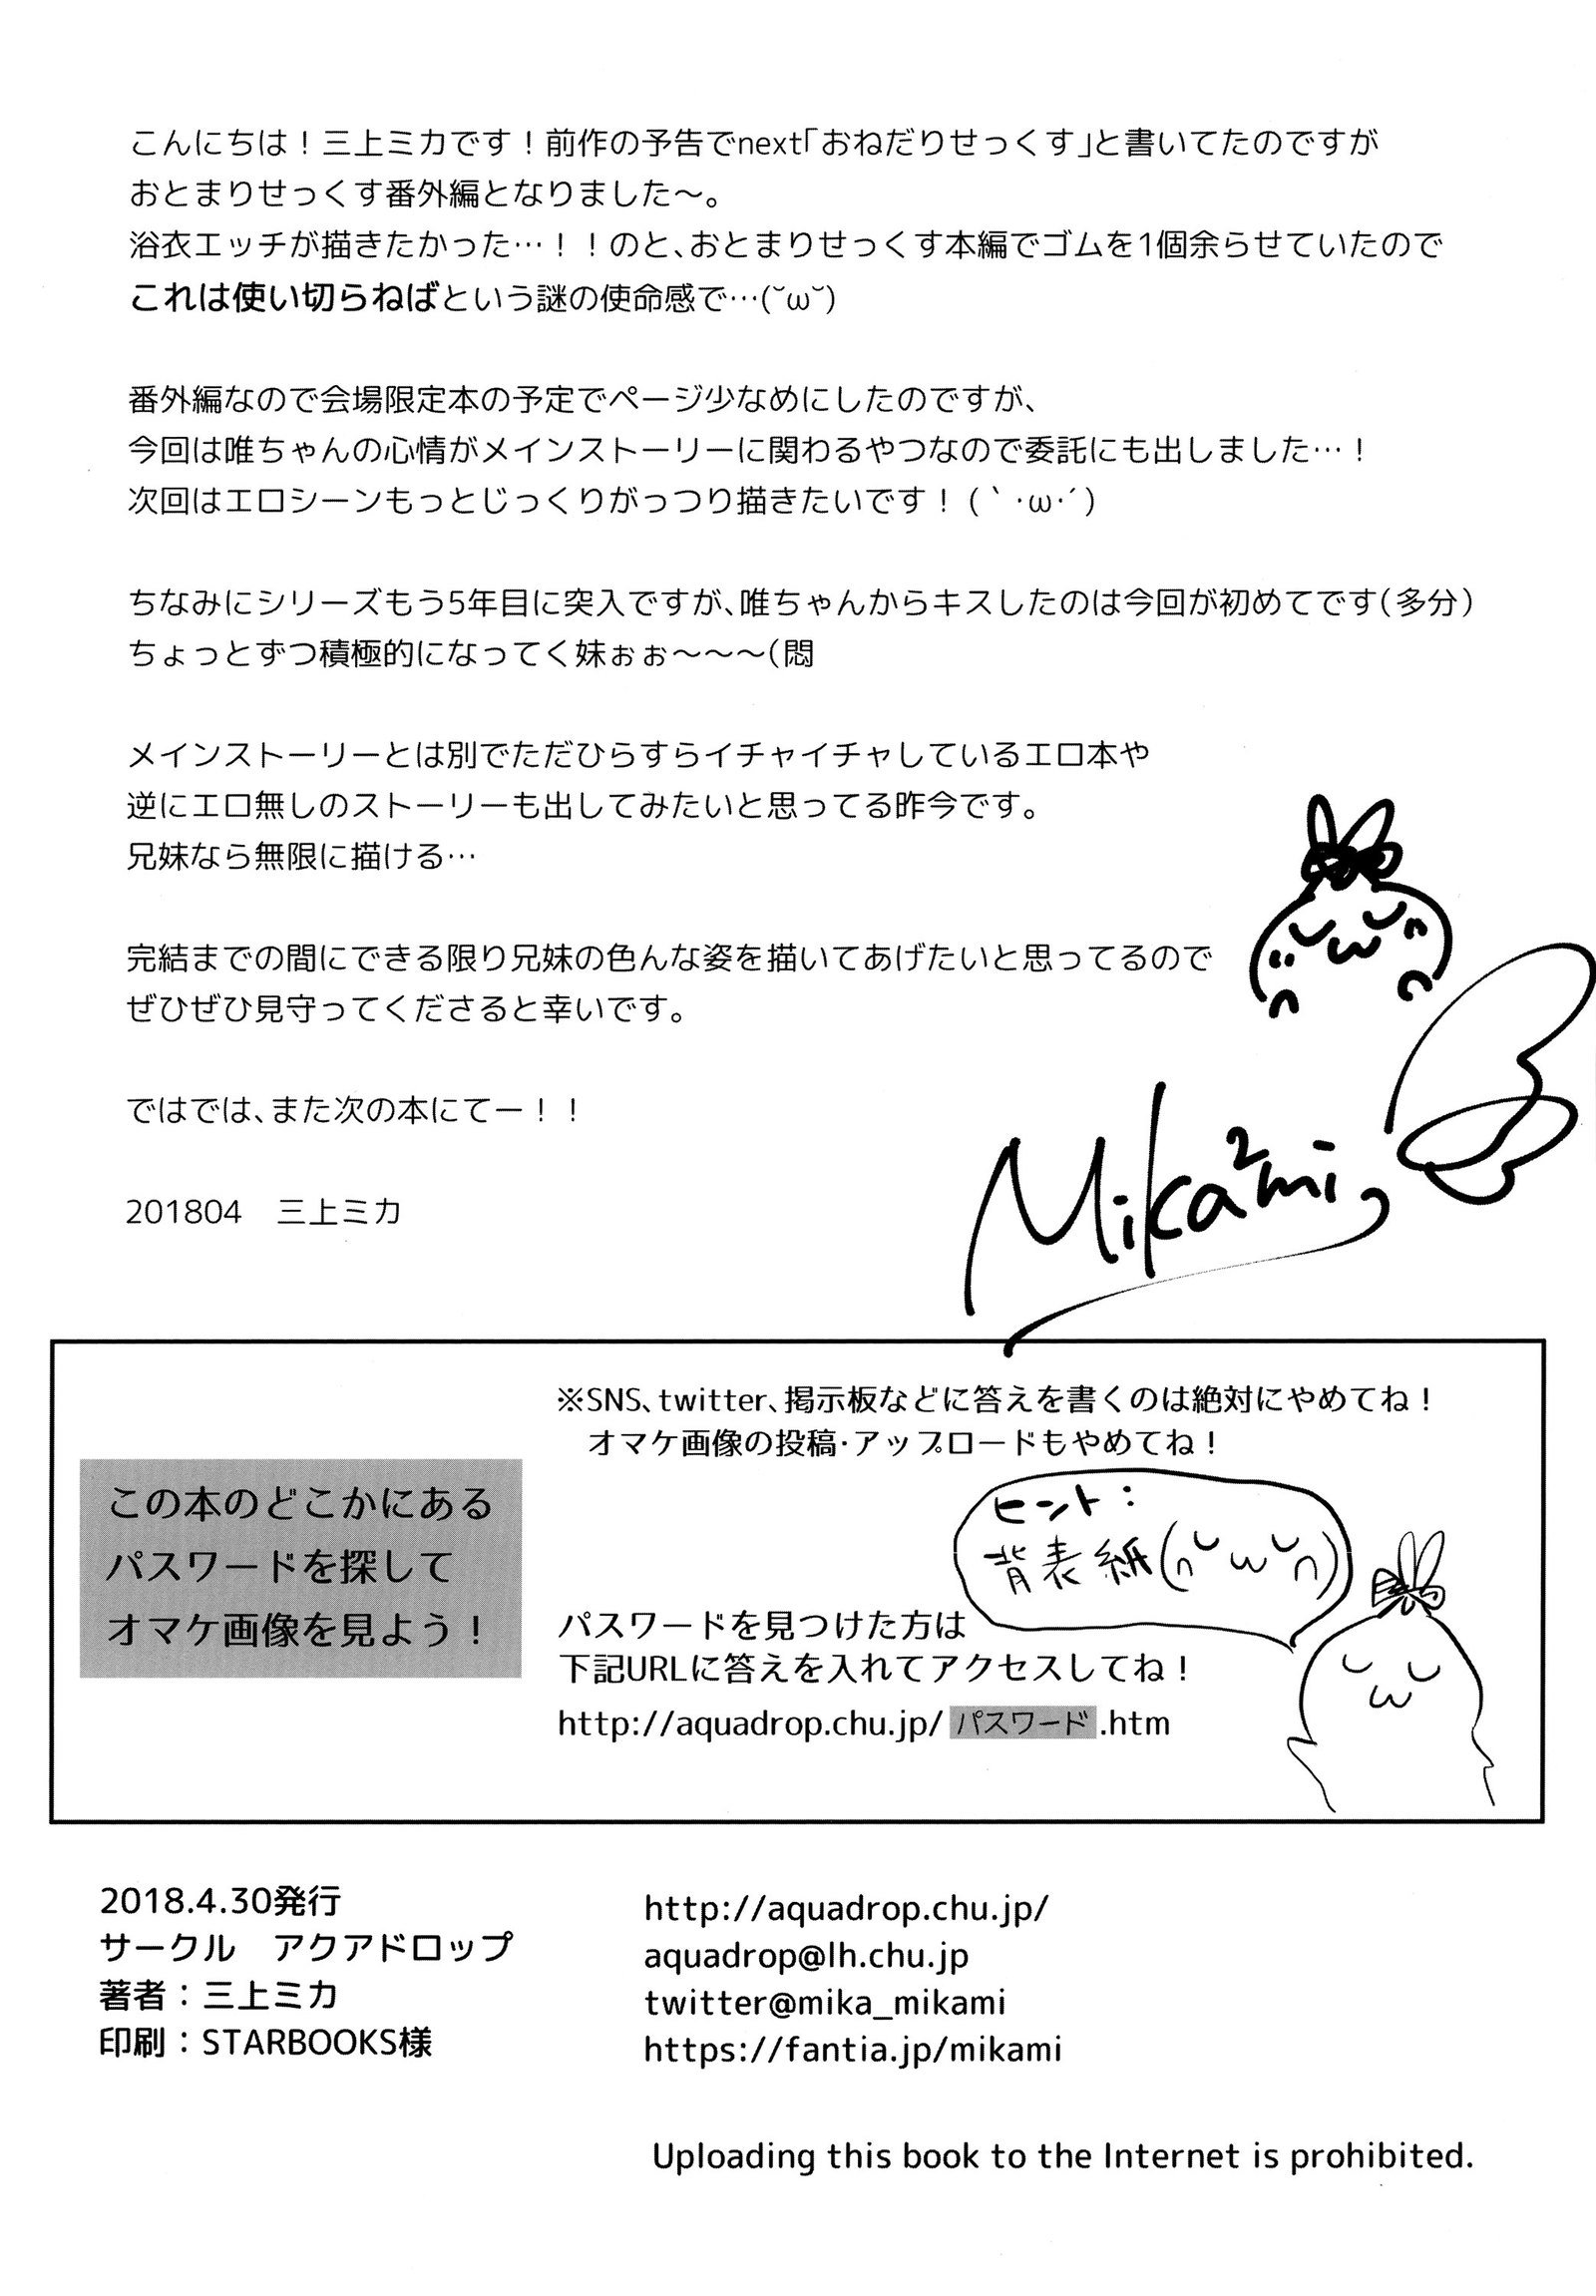 こんにちは！三上ミカです！前作の予告でnext「おねだりせっくす」と書いてたのですが
おとまりせっくす番外編となりました～。
浴衣エッチが描きたかった…！！のと、おとまりせっくす本編でゴムを1個余らせていたので
これは使い切らねばという謎の使命感で…(˘ω˘)
番外編なので会場限定本の予定でページ少なめにしたのですが、
今回は唯ちゃんの心情がメインストーリーに関わるやつなので委託にも出しました…！
次回はエロシーンもっとじっくりがっつり描きたいです！(｀･ω･´)
ちなみにシリーズもう5年目に突入ですが、唯ちゃんからキスしたのは今回が初めてです(多分)
ちょっとずつ積極的になってく妹ぉぉ～～～(悶
メインストーリーとは別でただひらすらイチャイチャしているエロ本や
逆にエロ無しのストーリーも出してみたいと思ってる昨今です。
兄妹なら無限に描ける…
完結までの間にできる限り兄妹の色んな姿を描いてあげたいと思ってるので
ぜひぜひ見守ってくださると幸いです。
ではでは、また次の本にてー！！
201804　三上ミカ
Mika²mi
※SNS、twitter、掲示板などに答えを書くのは絶対にやめてね！
オマケ画像の投稿・アップロードもやめてね！
この本のどこかにある
パスワードを探して
オマケ画像を見よう！
ヒント：
背表紙(∩˘ω˘∩)
パスワードを見つけた方は
下記URLに答えを入れてアクセスしてね！
http://aquadrop.chu.jp/ パスワード .htm
2018.4.30発行
サークル　アクアドロップ
著者：三上ミカ
印刷：STARBOOKS様
http://aquadrop.chu.jp/
aquadrop@lh.chu.jp
twitter@mika_mikami
https://fantia.jp/mikami
Uploading this book to the Internet is prohibited.